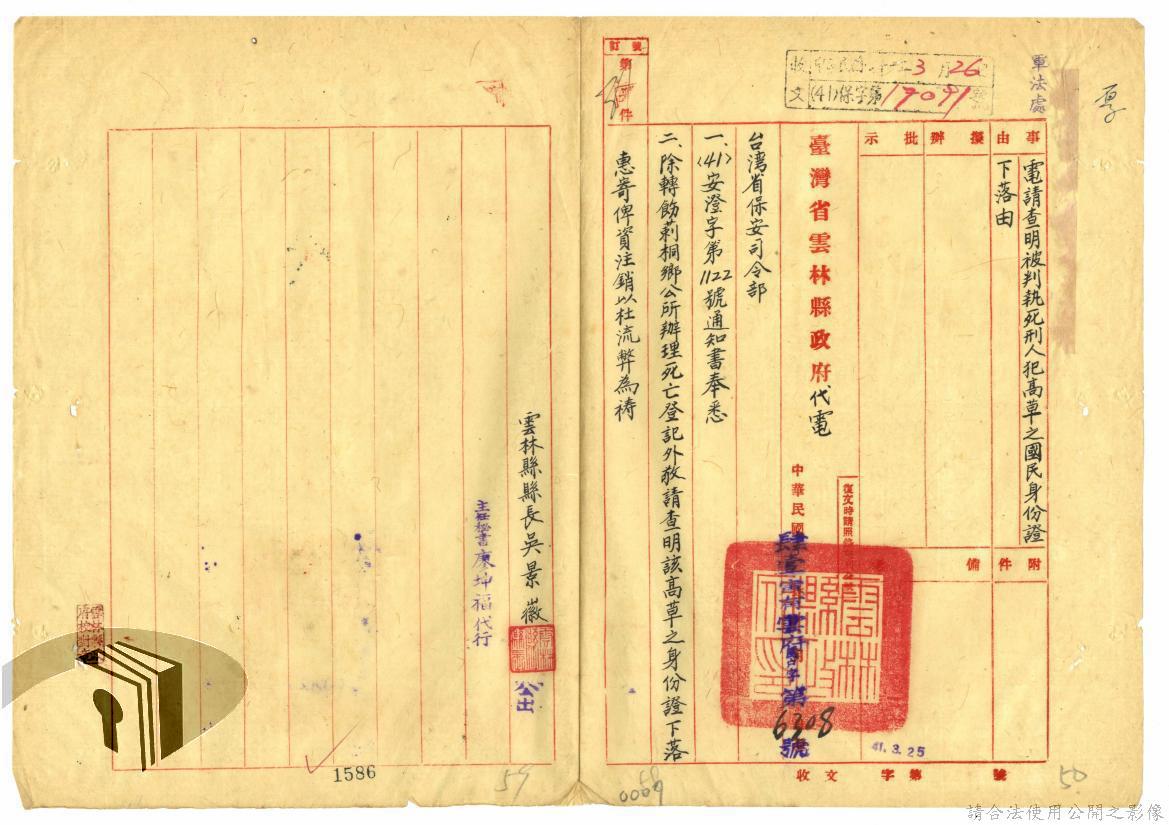 軍法處
中華民國 3月26
收文 (41)保字第17091號
事由
電請查明被判執死刑人犯高草之國民身份證
下落由
擬辦
批示
附件
備
臺灣省雲林縣政府代電
中華民國
復文時請照
肆壹
雲府
字第6308號
41.3.25
收文 字第 號
台湾省保安司令部
一、(41)安澄字第1122號通知書奉悉
二、除轉飭莿桐鄉公所辦理死亡登記外敬請查明該高草之身份證下落
惠寄俾資注銷以杜流弊為禱
雲林縣縣長吳景徽
公出
主任秘書康坤福代行
訂號
第 件
1586
59
0069
50
請合法使用公開之影像